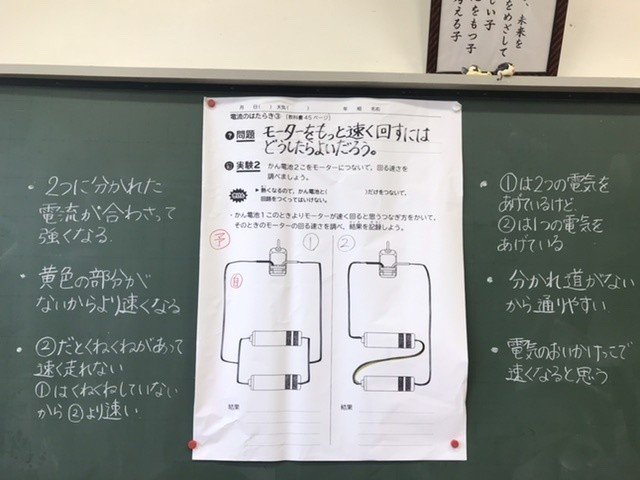 、未来を
をめざして
しい子
をもつ子
考える子
月 日( ) 天気( ) 年 組 名前
電流のはたらき③ (教科書45ページ)
問題 モーターをもっと速く回すには
どうしたらよいだろう。
実験2 かん電池2こをモーターにつないで、回る速さを
調べましょう。
熱くなるので、かん電池と( )だけをつないで、
回路をつくってはいけない。
・かん電池1このときよりモーターが速く回ると思うつなぎ方をかいて、
そのときのモーターの回る速さを調べ、結果を記録しよう。
予 ① ②
結果
結果
・2つに分かれた
電流が合わさって
強くなる
・黄色の部分が
ないからより速くなる
・②だとくねくねがあって
速く走れない
①はくねくねしていない
から②より速い
・①は2つの電気を
あげているけど
②は1つの電気を
あげている
・分かれ道がない
から通りやすい
・電気のおいかけっこで
速くなると思う